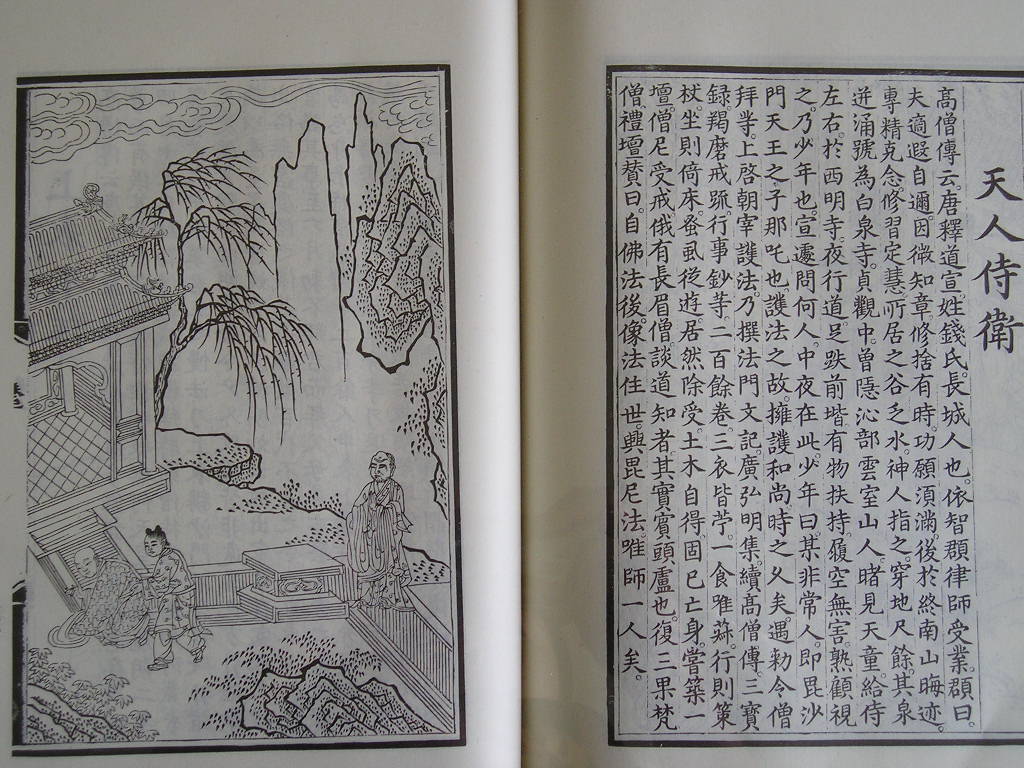 天人侍衛
高僧傳云。唐釋道宣姓錢氏。長城人也。依智頵律師受業。頵曰。
夫適遐自邇。因微知章。修捨有時。功願須滿。後於終南山晦迹。
專精克念。修習定慧。所居之谷乏水。神人指之。穿地尺餘。其泉
迸涌。號為白泉寺。貞觀中。曾隱沁部雲室山。人睹見天童。給侍
左右。於西明寺夜行道。足跌前堦。有物扶持。履空無害。熟顧視
之。乃少年也。宣遽問何人。中夜在此。少年曰。某非常人。即毘沙
門天王之子那吒也。護法之故。擁護和尚。時之久矣。遇勅令僧
拜等。上啓朝宰護法。乃撰法門文記。廣弘明集。續高僧傳。三寶
録。羯磨。戒疏。行事鈔等。二百餘卷。三衣皆苧。一食唯菽。行則策
杖。坐則倚床。蚤虱從遊。居然除受。土木自得。固已亡身。嘗築一
壇。僧尼受戒。俄有長眉僧談道。知者其實賓頭盧也。復三果梵
僧禮壇贊曰。自佛法後。像法住世。興毘尼法。唯師一人矣。